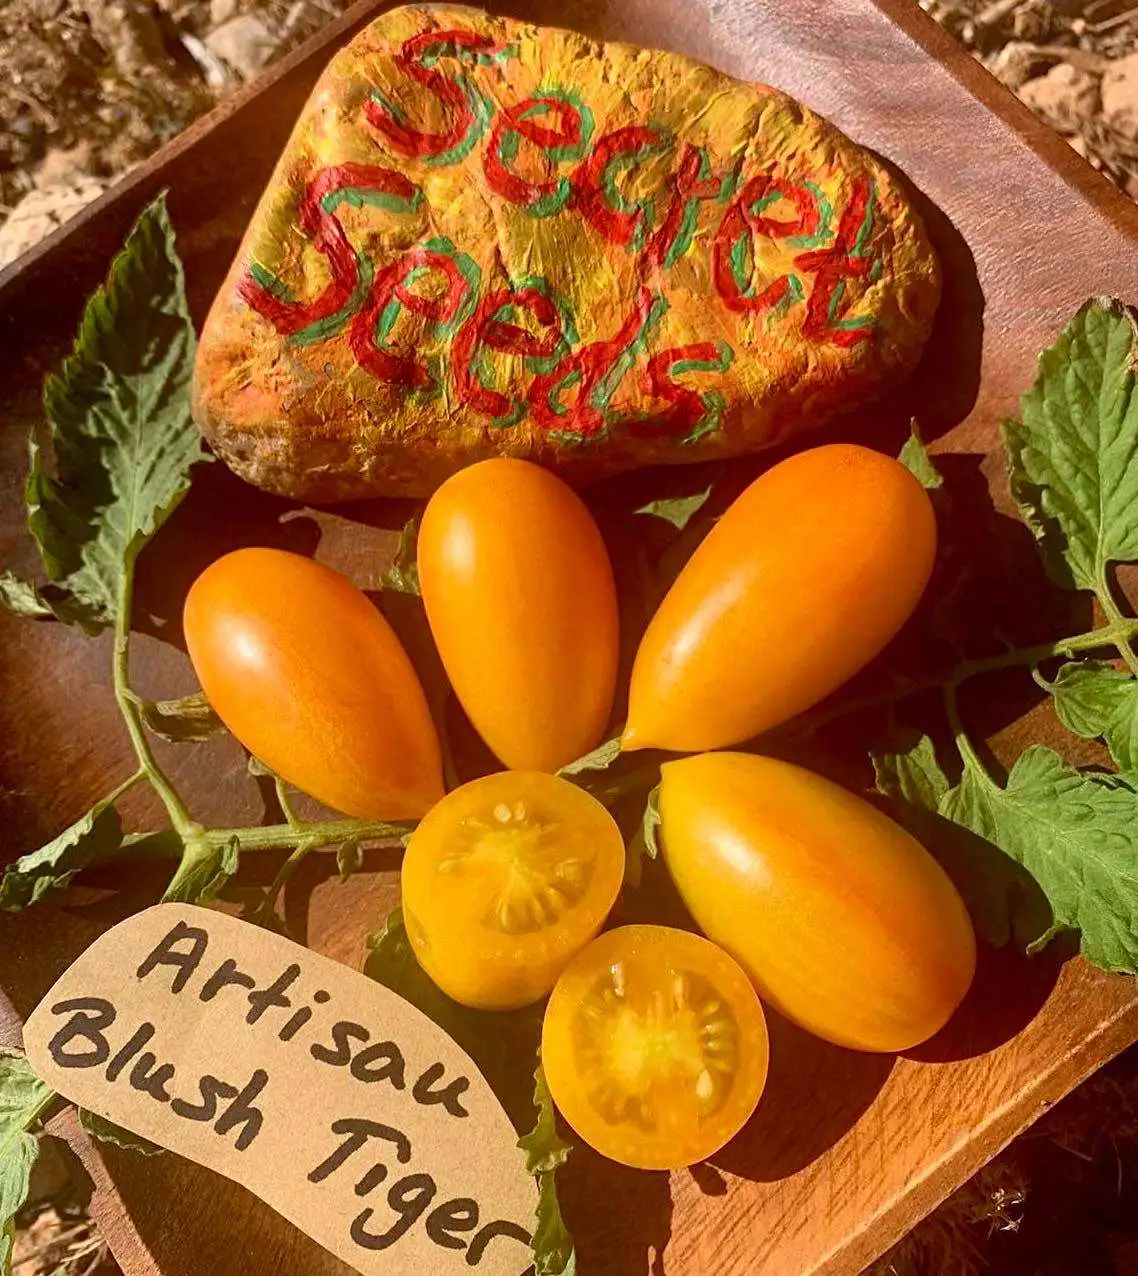 Secret
Seeds
Artisau
Blush Tiger